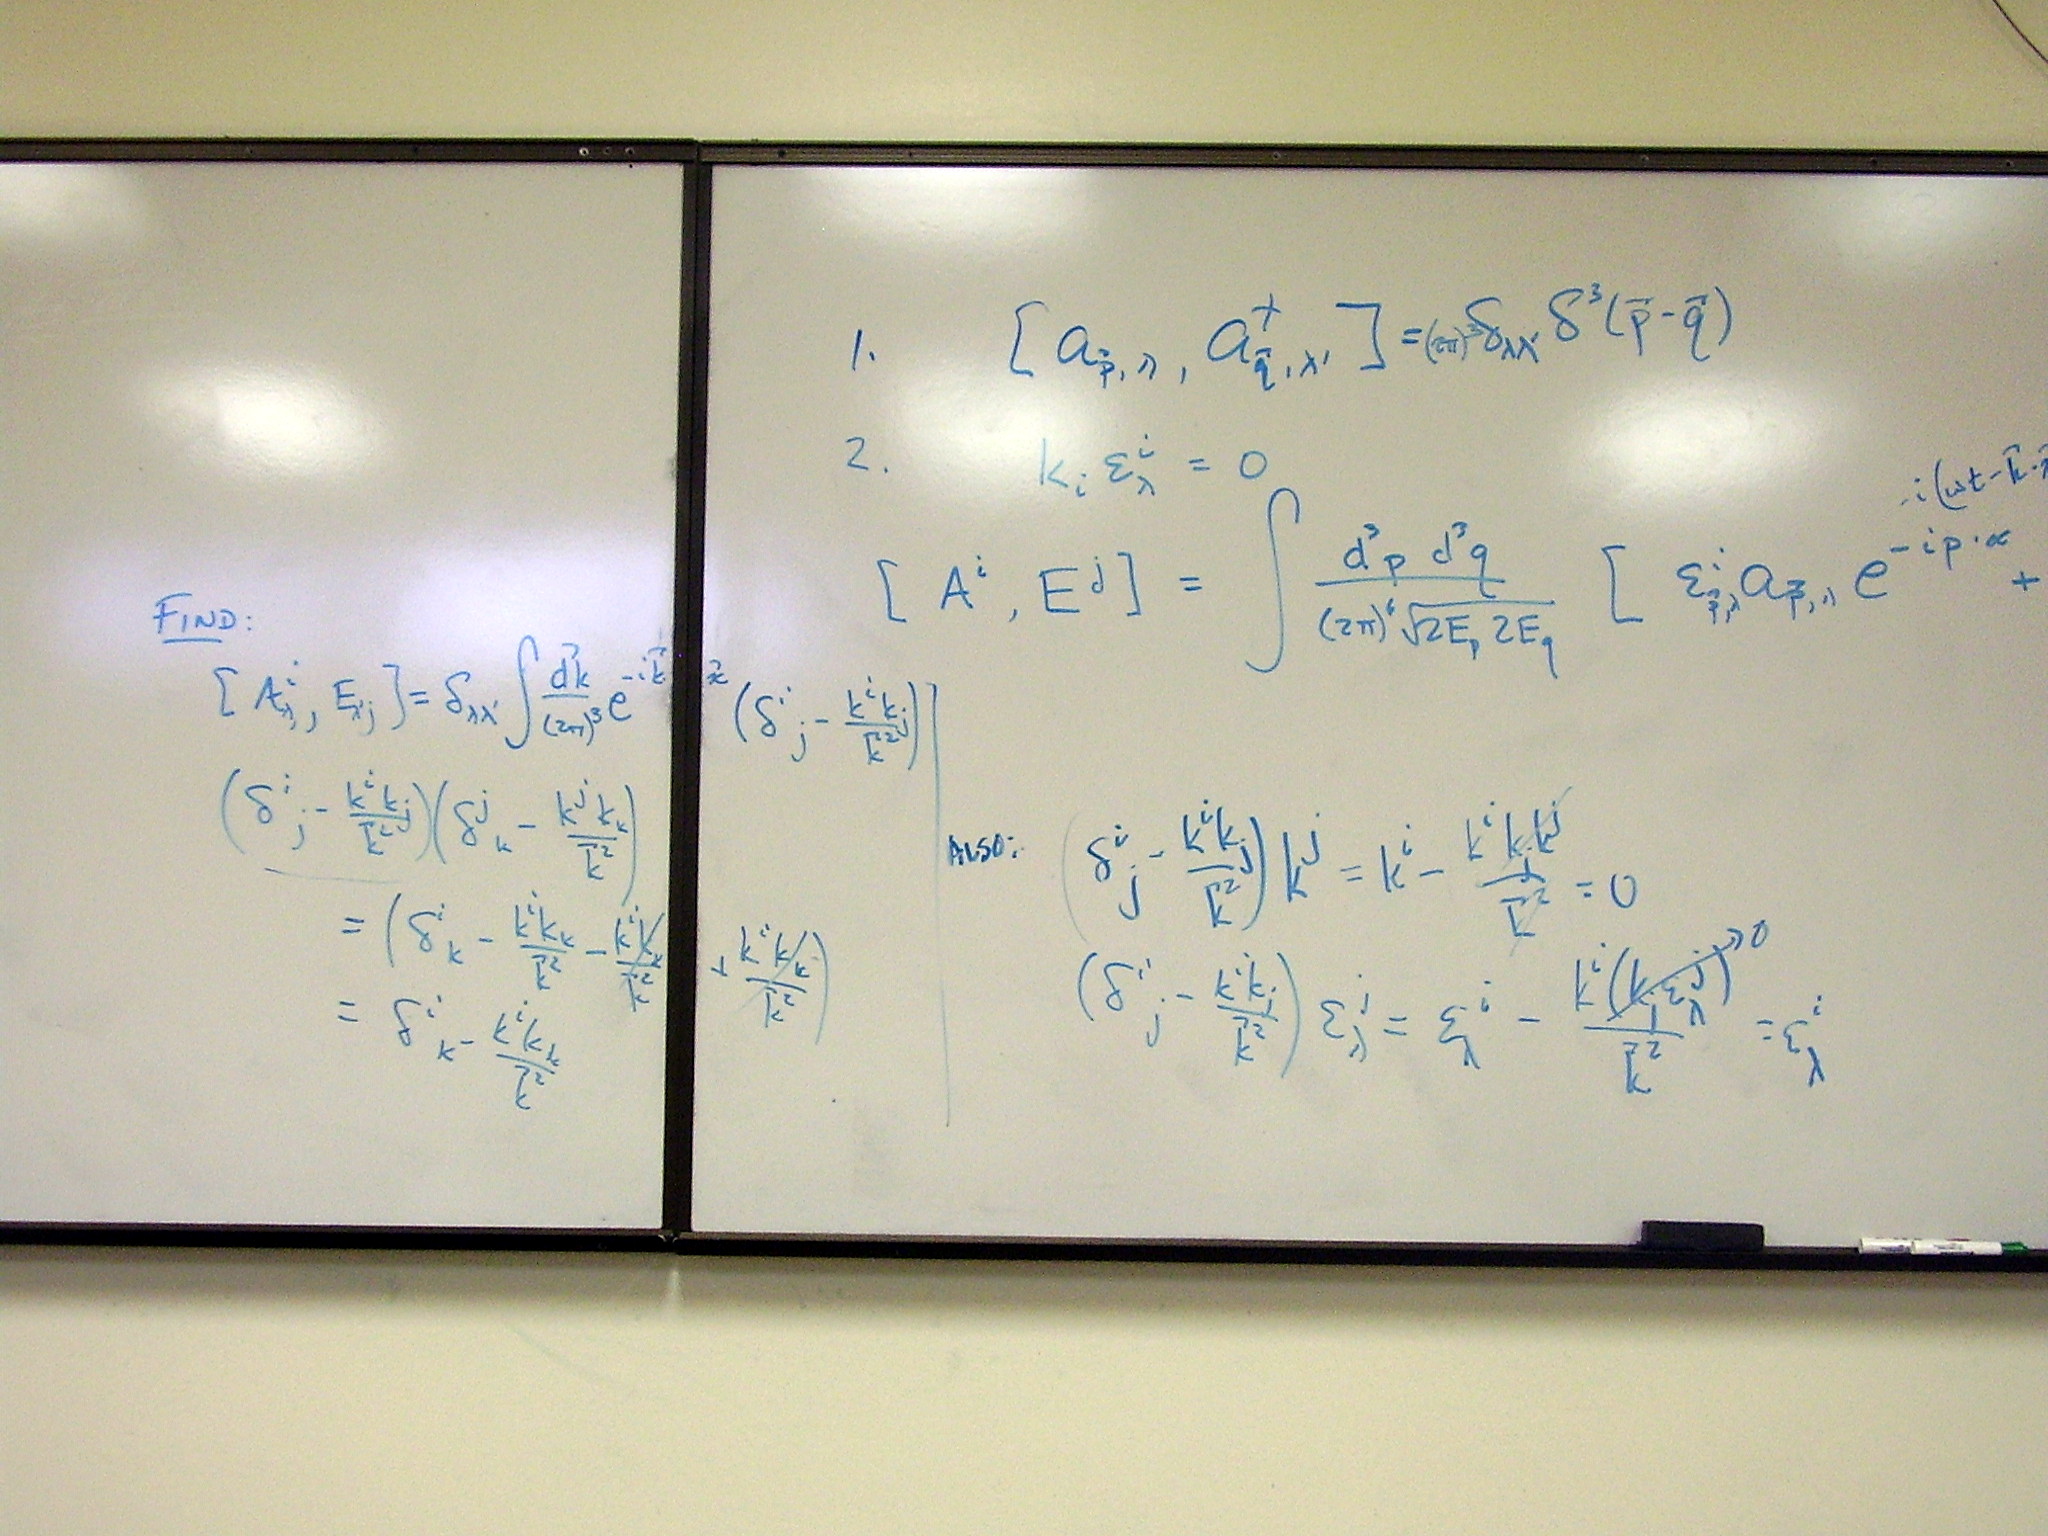 1. [ a_{\vec{p},λ}, a^†_{\vec{q},λ'} ] = (2π)^3 δ_{λλ'} δ^3(\vec{p} - \vec{q})
2. k_i ε^i_λ = 0
-i(ωt - \vec{k}·\vec{x}
[ A^i, E^j ] = ∫ \frac{d^3p d^3q}{(2π)^6 \sqrt{2E_p 2E_q}} [ ε^i_{\vec{p},λ} a_{\vec{p},λ} e^{-ip·x} +
FIND:
[ A^i_λ, E_{λ'j} ] = δ_{λλ'} ∫ \frac{d^3k}{(2π)^3} e^{-i\vec{k} \vec{x}} (δ^i_j - \frac{k^i k_j}{\vec{k}^2})
(δ^i_j - \frac{k^i k_j}{\vec{k}^2})(δ^j_k - \frac{k^j k_k}{\vec{k}^2})
= (δ^i_k - \frac{k^i k_k}{\vec{k}^2} - \frac{k^i k_k}{\vec{k}^2} + \frac{k^i k_k}{\vec{k}^2})
= δ^i_k - \frac{k^i k_k}{\vec{k}^2}
ALSO: (δ^i_j - \frac{k^i k_j}{\vec{k}^2}) k^j = k^i - \frac{k^i k_j k^j}{\vec{k}^2} = 0
(δ^i_j - \frac{k^i k_j}{\vec{k}^2}) ε^j_λ = ε^i_λ - \frac{k^i (k_j ε^j_λ)}{\vec{k}^2} → 0 = ε^i_λ